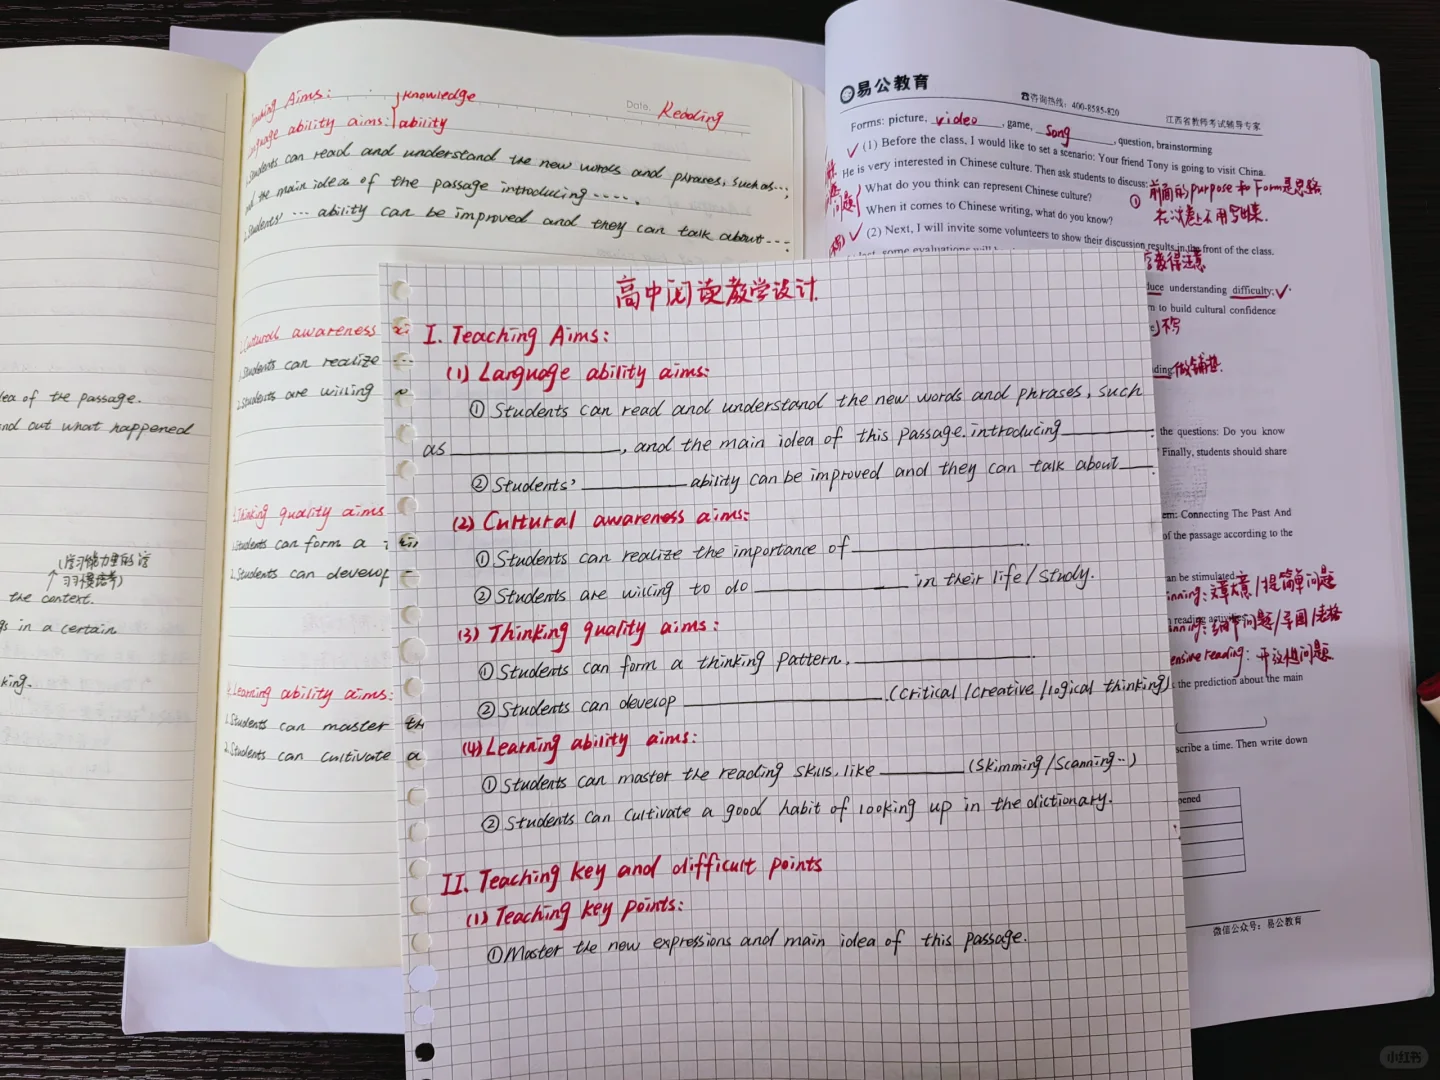 Teaching Aims: Knowledge
Language ability aims: ability
Date. Reading
1.Students can read and understand the new words and phrases, such as...;
and the main idea of the passage introducing .....
2.Students' ... ability can be improved and they can talk about ...
2.Cultural awareness
1.Students can realize
2.Students are willing
3.Thinking quality aims
1.Students can form a
2.Students can develop
4.Learning ability aims:
1.Students can master
2.Students can cultivate a
idea of the passage.
out what happened
the context.
in a certain
king.
高中阅读教学设计
I. Teaching Aims:
(1) Language ability aims:
① Students can read and understand the new words and phrases, such
as ________, and the main idea of this passage. introducing ________.
② Students' ________ ability can be improved and they can talk about ____.
(2) Cultural awareness aims:
① Students can realize the importance of ________.
② Students are willing to do ________ in their life/study.
(3) Thinking quality aims:
① Students can form a thinking pattern, ________.
② Students can develop ________.(critical/creative/logical thinking)
(4) Learning ability aims:
① Students can master the reading skills, like ______ (skimming/scanning...)
② Students can cultivate a good habit of looking up in the dictionary.
II. Teaching key and difficult points
(1) Teaching key points:
① Master the new expressions and main idea of this passage.
易公教育
☎咨询热线：400-8585-820
江西省教师考试辅导专家
Forms: picture, video, game, song, question, brainstorming
(1) Before the class, I would like to set a scenario: Your friend Tony is going to visit China.
He is very interested in Chinese culture. Then ask students to discuss:
What do you think can represent Chinese culture?
When it comes to Chinese writing, what do you know?
① 前面的purpose和Form是思路
问题
(2) Next, I will invite some volunteers to show their discussion results in the front of the class.
some evaluations will
understanding difficulty;
to build cultural confidence
不写
做铺垫.
the questions: Do you know
Finally, students should share
Connecting The Past And
of the passage according to the
can be stimulated
文章大意/提简单问题
细节问题/导图/表格
reading: 开放性问题
the prediction about the main
scribe a time. Then write down
pened
微信公众号：易公教育
小红书